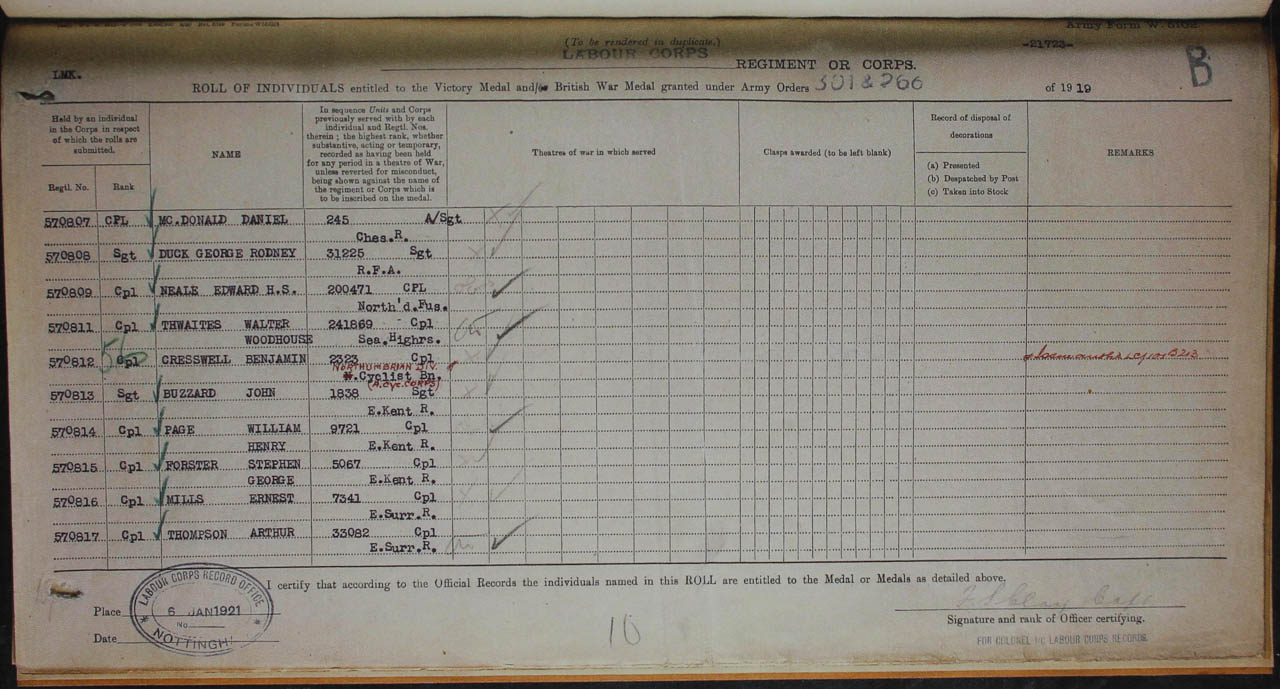 Army Form W. 5102.
(To be rendered in duplicate.)
-21723-
LABOUR CORPS
REGIMENT OR CORPS.
B
LMK.
ROLL OF INDIVIDUALS entitled to the Victory Medal and/or British War Medal granted under Army Orders 301 & 266 of 1919
Held by an individual
in the Corps in respect
of which the rolls are
submitted.
Regtl. No.
Rank
NAME
In sequence Units and Corps
previously served with by each
individual and Regtl. Nos.
therein; the highest rank, whether
substantive, acting or temporary,
recorded as having been held
for any period in a theatre of War,
unless reverted for misconduct,
being shown against the name of
the regiment or Corps which is
to be inscribed on the medal.
Theatres of war in which served
Clasps awarded (to be left blank)
Record of disposal of
decorations
(a) Presented
(b) Despatched by Post
(c) Taken into Stock
REMARKS
570807 CPL MC.DONALD DANIEL 245 A/Sgt
Ches.R.
570808 Sgt DUCK GEORGE RODNEY 31225 Sgt
R.F.A.
570809 Cpl NEALE EDWARD H.S. 200471 CPL
North'd.Fus.
570811 Cpl THWAITES WALTER 241869 Cpl
WOODHOUSE Sea.Highrs.
570812 Cpl CRESSWELL BENJAMIN 2323 Cpl
NORTHUMBRIAN DIV.
Cyclist Bn.
(A.CYC.CORPS)
570813 Sgt BUZZARD JOHN 1838 Sgt
E.Kent R.
570814 Cpl PAGE WILLIAM 9721 Cpl
HENRY E.Kent R.
570815 Cpl FORSTER STEPHEN 5067 Cpl
GEORGE E.Kent R.
570816 Cpl MILLS ERNEST 7341 Cpl
E.Surr.R.
570817 Cpl THOMPSON ARTHUR 33082 Cpl
E.Surr.R.
I certify that according to the Official Records the individuals named in this ROLL are entitled to the Medal or Medals as detailed above.
Place
Date
LABOUR CORPS RECORD OFFICE
6 JAN 1921
No.
NOTTINGH
10
Signature and rank of Officer certifying.
FOR COLONEL I/C LABOUR CORPS RECORDS.